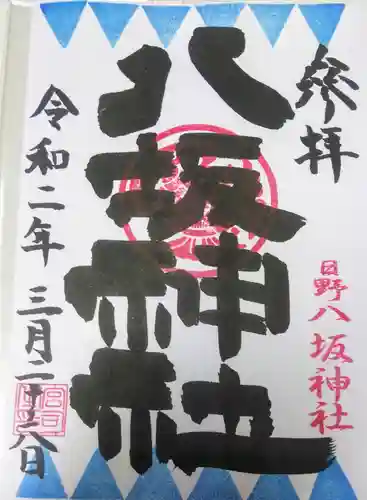 参拝
八坂神社
日野八坂神社
令和二年三月二十八日